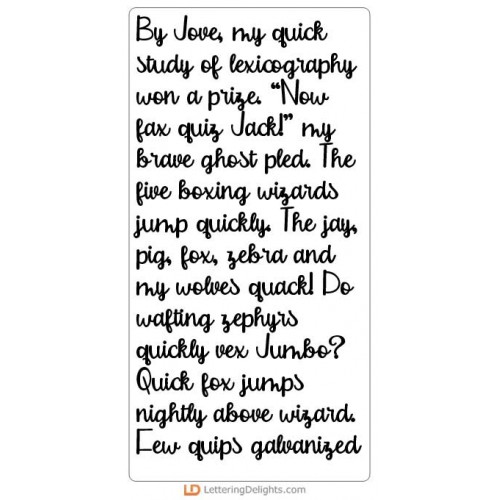 By Jove, my quick
study of lexicography
won a prize. “Now
fax quiz Jack!” my
brave ghost pled. The
five boxing wizards
jump quickly. The jay,
pig, fox, zebra and
my wolves quack! Do
wafting zephyrs
quickly vex Jumbo?
Quick fox jumps
nightly above wizard.
Few quips galvanized
LD LetteringDelights.com